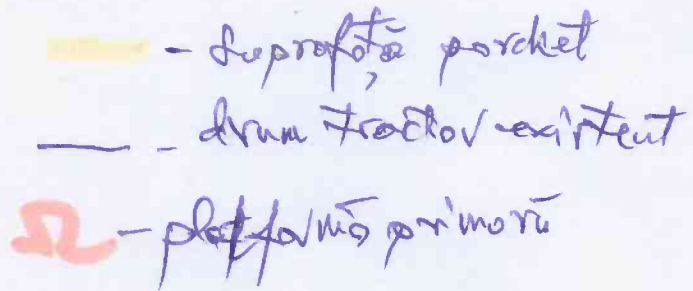 - Suprafață parchet
- drum tractor existent
- platformă primară